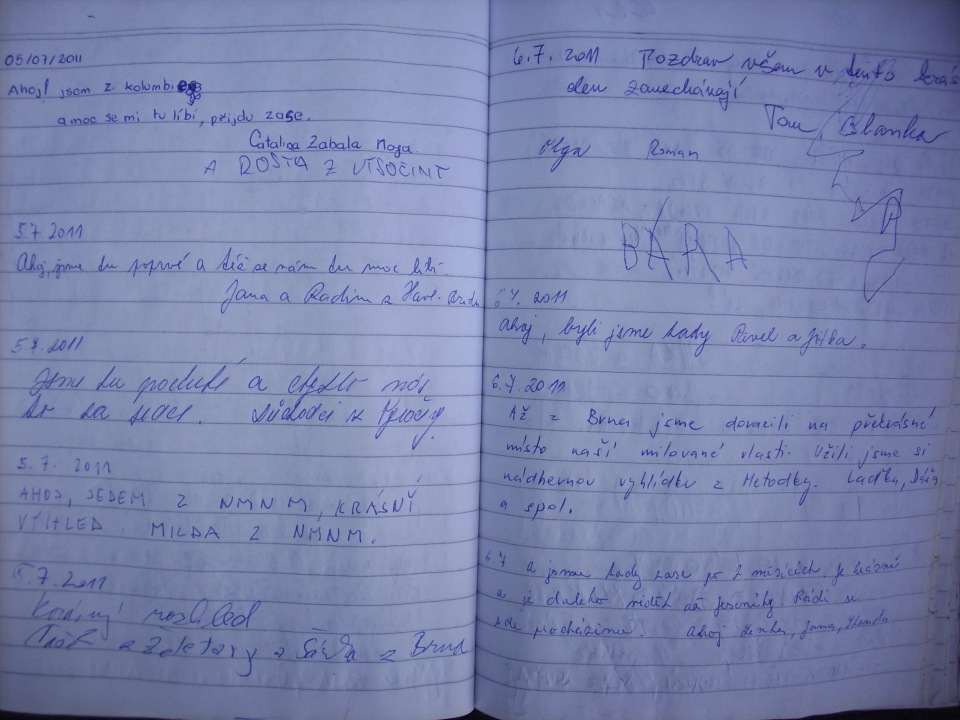 05/07/2011
Ahoj! jsem z kolumbi
a moc se mi tu líbí, přijdu zase.
Catalina Zabala Moya
A ROSŤA Z VYSOČINY
5.7. 2011
Ahoj, jsme tu poprvé a se nám tu moc líbí.
Jana a Radim z Havl. Brodu
5.7. 2011
Jsme tu podruhé a nás
to za srdce. Důchodci z
5. 7. 2011
AHOJ, JEDEM Z NMNM, KRÁSNÝ
VÝHLED. MILDA Z NMNM.
5.7. 2011
Krásný rozhled
a Sárka z Brna
6.7. 2011 Pozdrav všem v tento
den zanechávají
Tom, Blanka
Olga Roman
BÁRA
6.7. 2011
Ahoj, byli jsme tady Pavel a Jitka.
6.7. 2011
Až z Brna jsme dorazili na překrásné
místo naší milované vlasti. Užili jsme si
nádhernou vyhlídku z Metodky. Laďka,
a spol.
6.7 a jsme tady zase po 2 měsících. Je krásně
a je daleko vidět až Jeseníky Rádi se
zde procházíme. Ahoj Lenka, Jana,